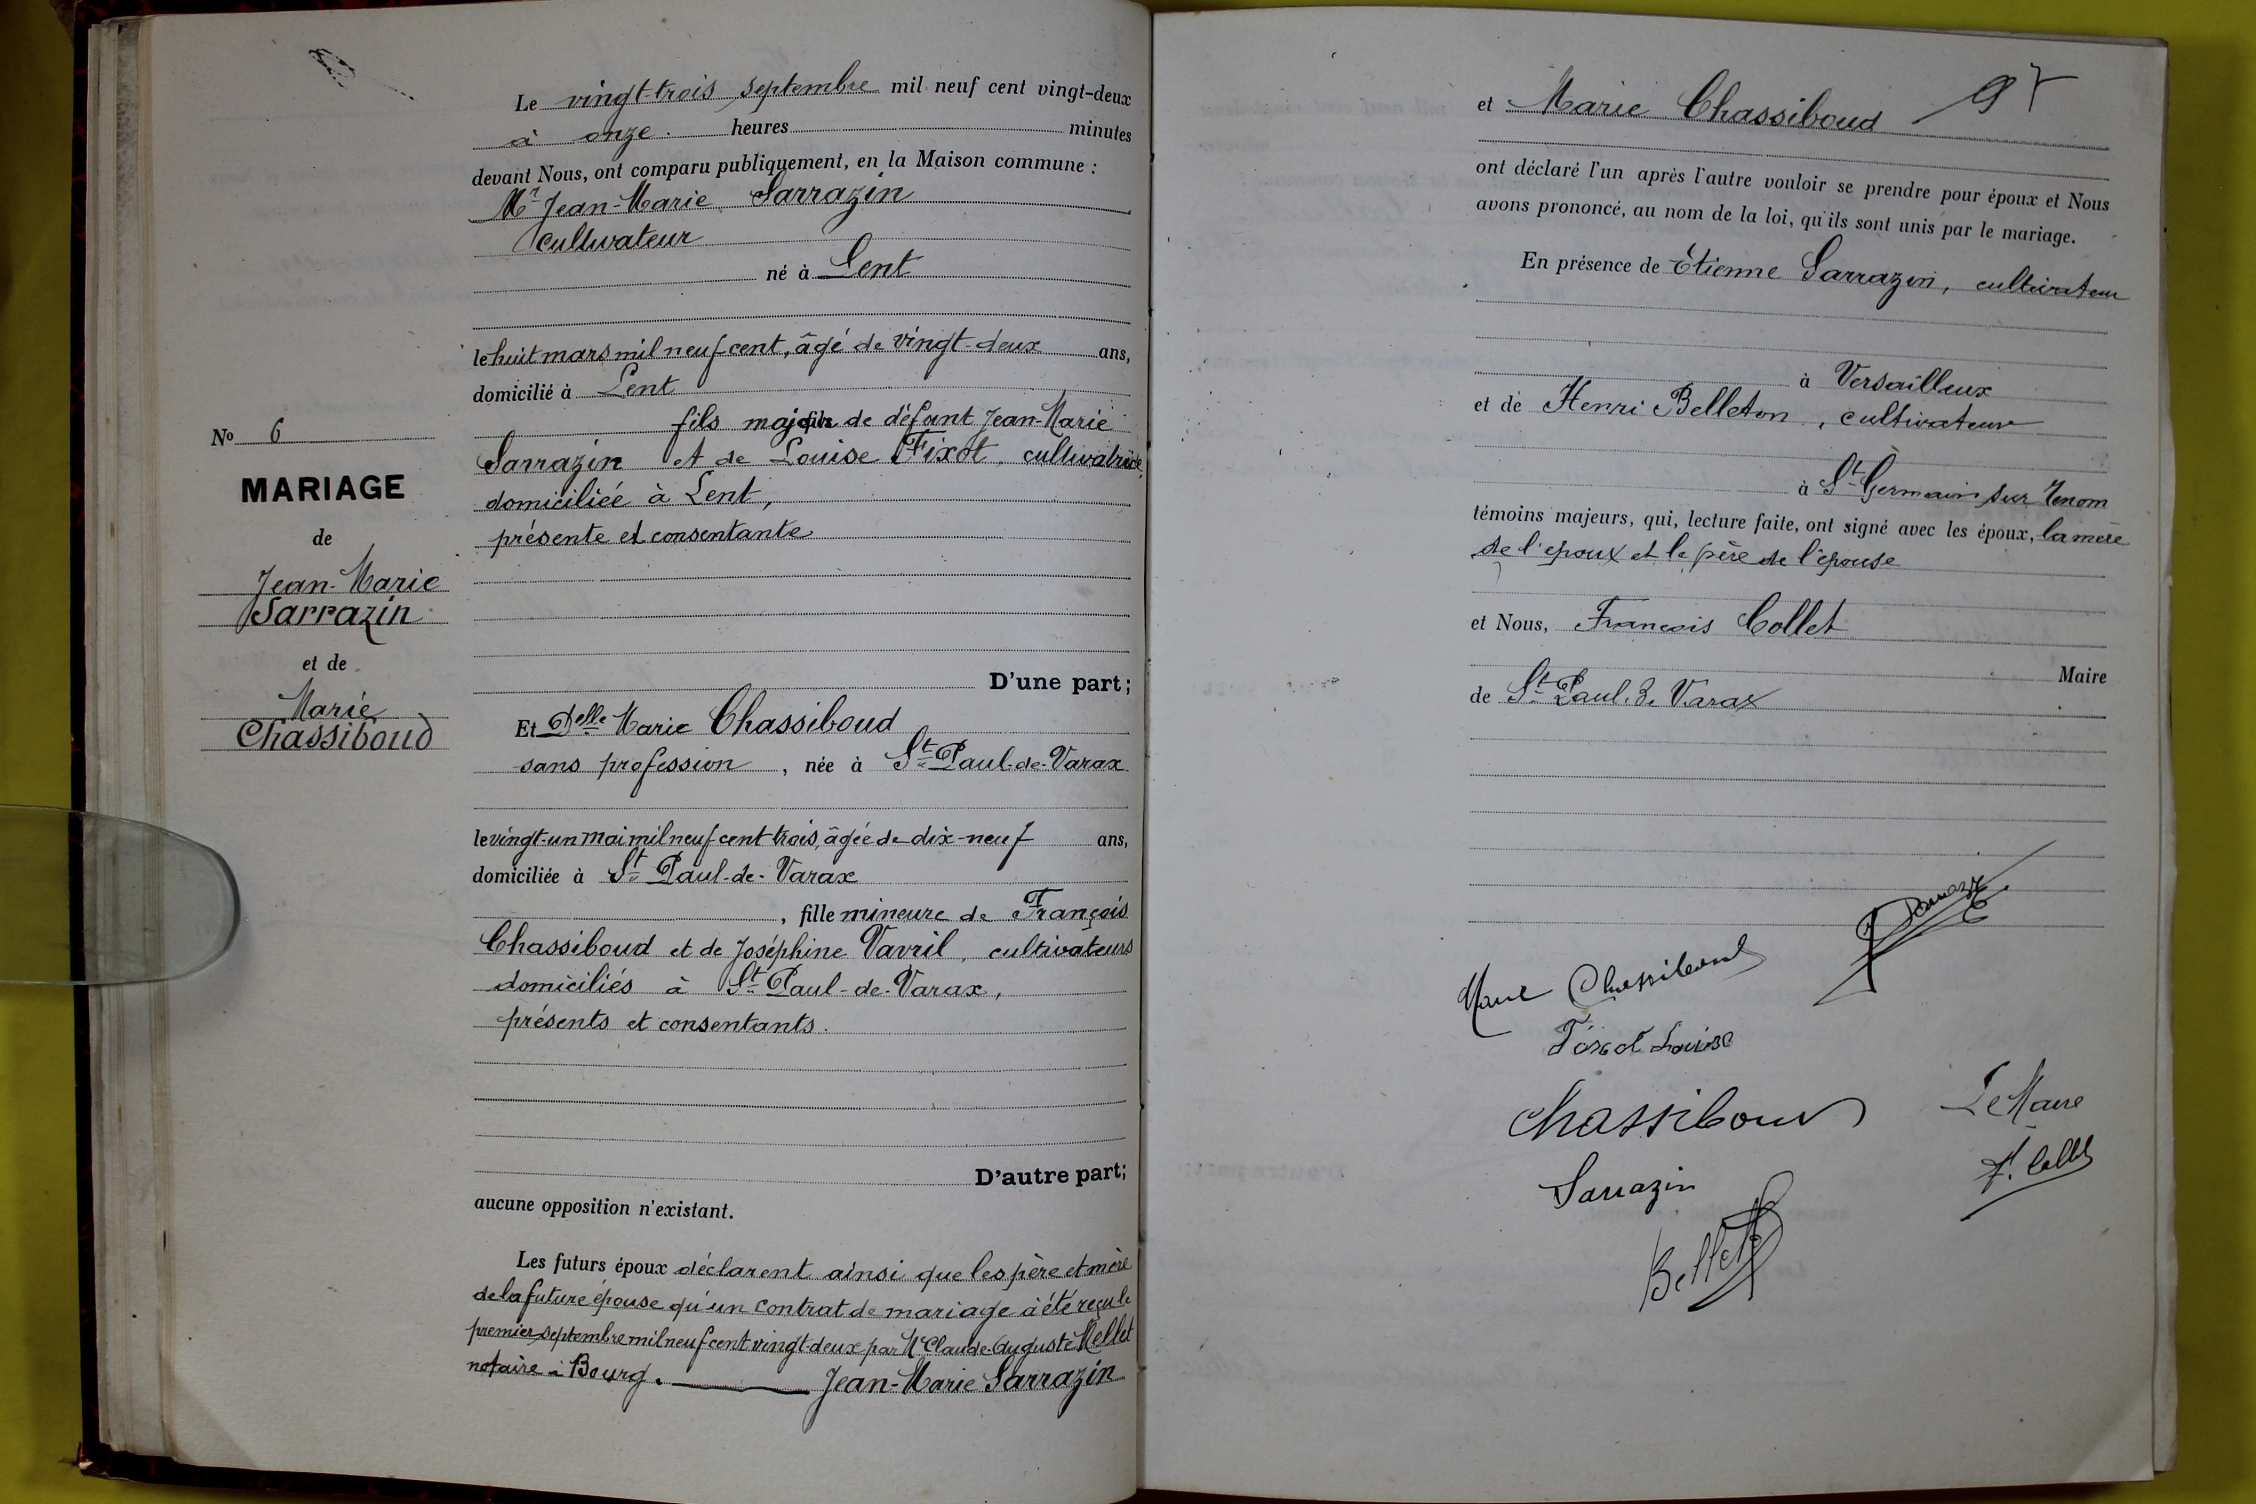 Le vingt-trois septembre mil neuf cent vingt-deux
à onze heures minutes
devant Nous, ont comparu publiquement, en la Maison commune :
Mr Jean-Marie Sarrazin
cultivateur
né à Lent
le huit mars mil neuf cent, âgé de vingt-deux ans,
domicilié à Lent
fils majeur de défunt Jean-Marie
Sarrazin et de Louise Fixot, cultivatrice,
domiciliée à Lent,
présente et consentante
D'une part;
Et Delle Marie Chassiboud
sans profession, née à St Paul-de-Varax
le vingt-un mai mil neuf cent trois, âgée de dix-neuf ans,
domiciliée à St Paul-de-Varax
, fille mineure de François
Chassiboud et de Joséphine Vavril, cultivateurs
domiciliés à St Paul-de-Varax,
présents et consentants.
D'autre part;
aucune opposition n'existant.
Les futurs époux déclarent ainsi que les père et mère
de la future épouse qu'un contrat de mariage à été reçu le
premier septembre mil neuf cent vingt-deux par Me Claude-Auguste Mellet
notaire à Bourg. Jean-Marie Sarrazin
No 6
MARIAGE
de
Jean-Marie
Sarrazin
et de
Marie
Chassiboud
97
et Marie Chassiboud
ont déclaré l'un après l'autre vouloir se prendre pour époux et Nous
avons prononcé, au nom de la loi, qu'ils sont unis par le mariage.
En présence de Etienne Sarrazin, cultivateur
à Versailleux
et de Henri Belleton, cultivateur
à St Germain sur Renom
témoins majeurs, qui, lecture faite, ont signé avec les époux, la mère
de l'époux et le père de l'épouse
et Nous, François Collet
Maire
de St Paul de Varax
Sarrazin
Marie Chassiboud
Fixot Louise
Chassiboud
Le Maire
F. Collet
Sarrazin
Belleton